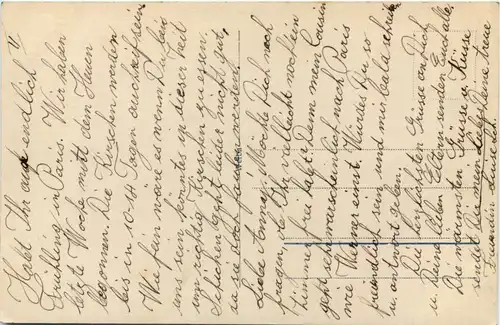 V
Habt Ihr auch endlich
Frühling in Paris. Wir haben
letzte Woche mit dem Heuen
begonnen. Die Kirschen werden
bis in 10-14 Tagen auch reif sein.
Wie fein wäre es wenn Du bei
uns sein könntest in dieser Zeit
um richtig Kirschen zu essen.
Schicken geht leider nicht gut,
da sie doch faulen werden.
Liebe Emmy, Möchte Dich noch
fragen, ob Ihr vielleicht noch ein
Zimmer frei habt? Denn mein Cousin
geht sehr wahrscheinlich nach Paris
wie Werner einst. Würdest Du so
freundlich sein und mir bald schreiben
u. antwort geben.
Die herzlichsten Grüsse an Dich
u. Deine lieben Eltern senden Euch alle.
Die wärmsten Grüsse u. Küsse
sendet Dir meine liebe
Freundin Deine treue